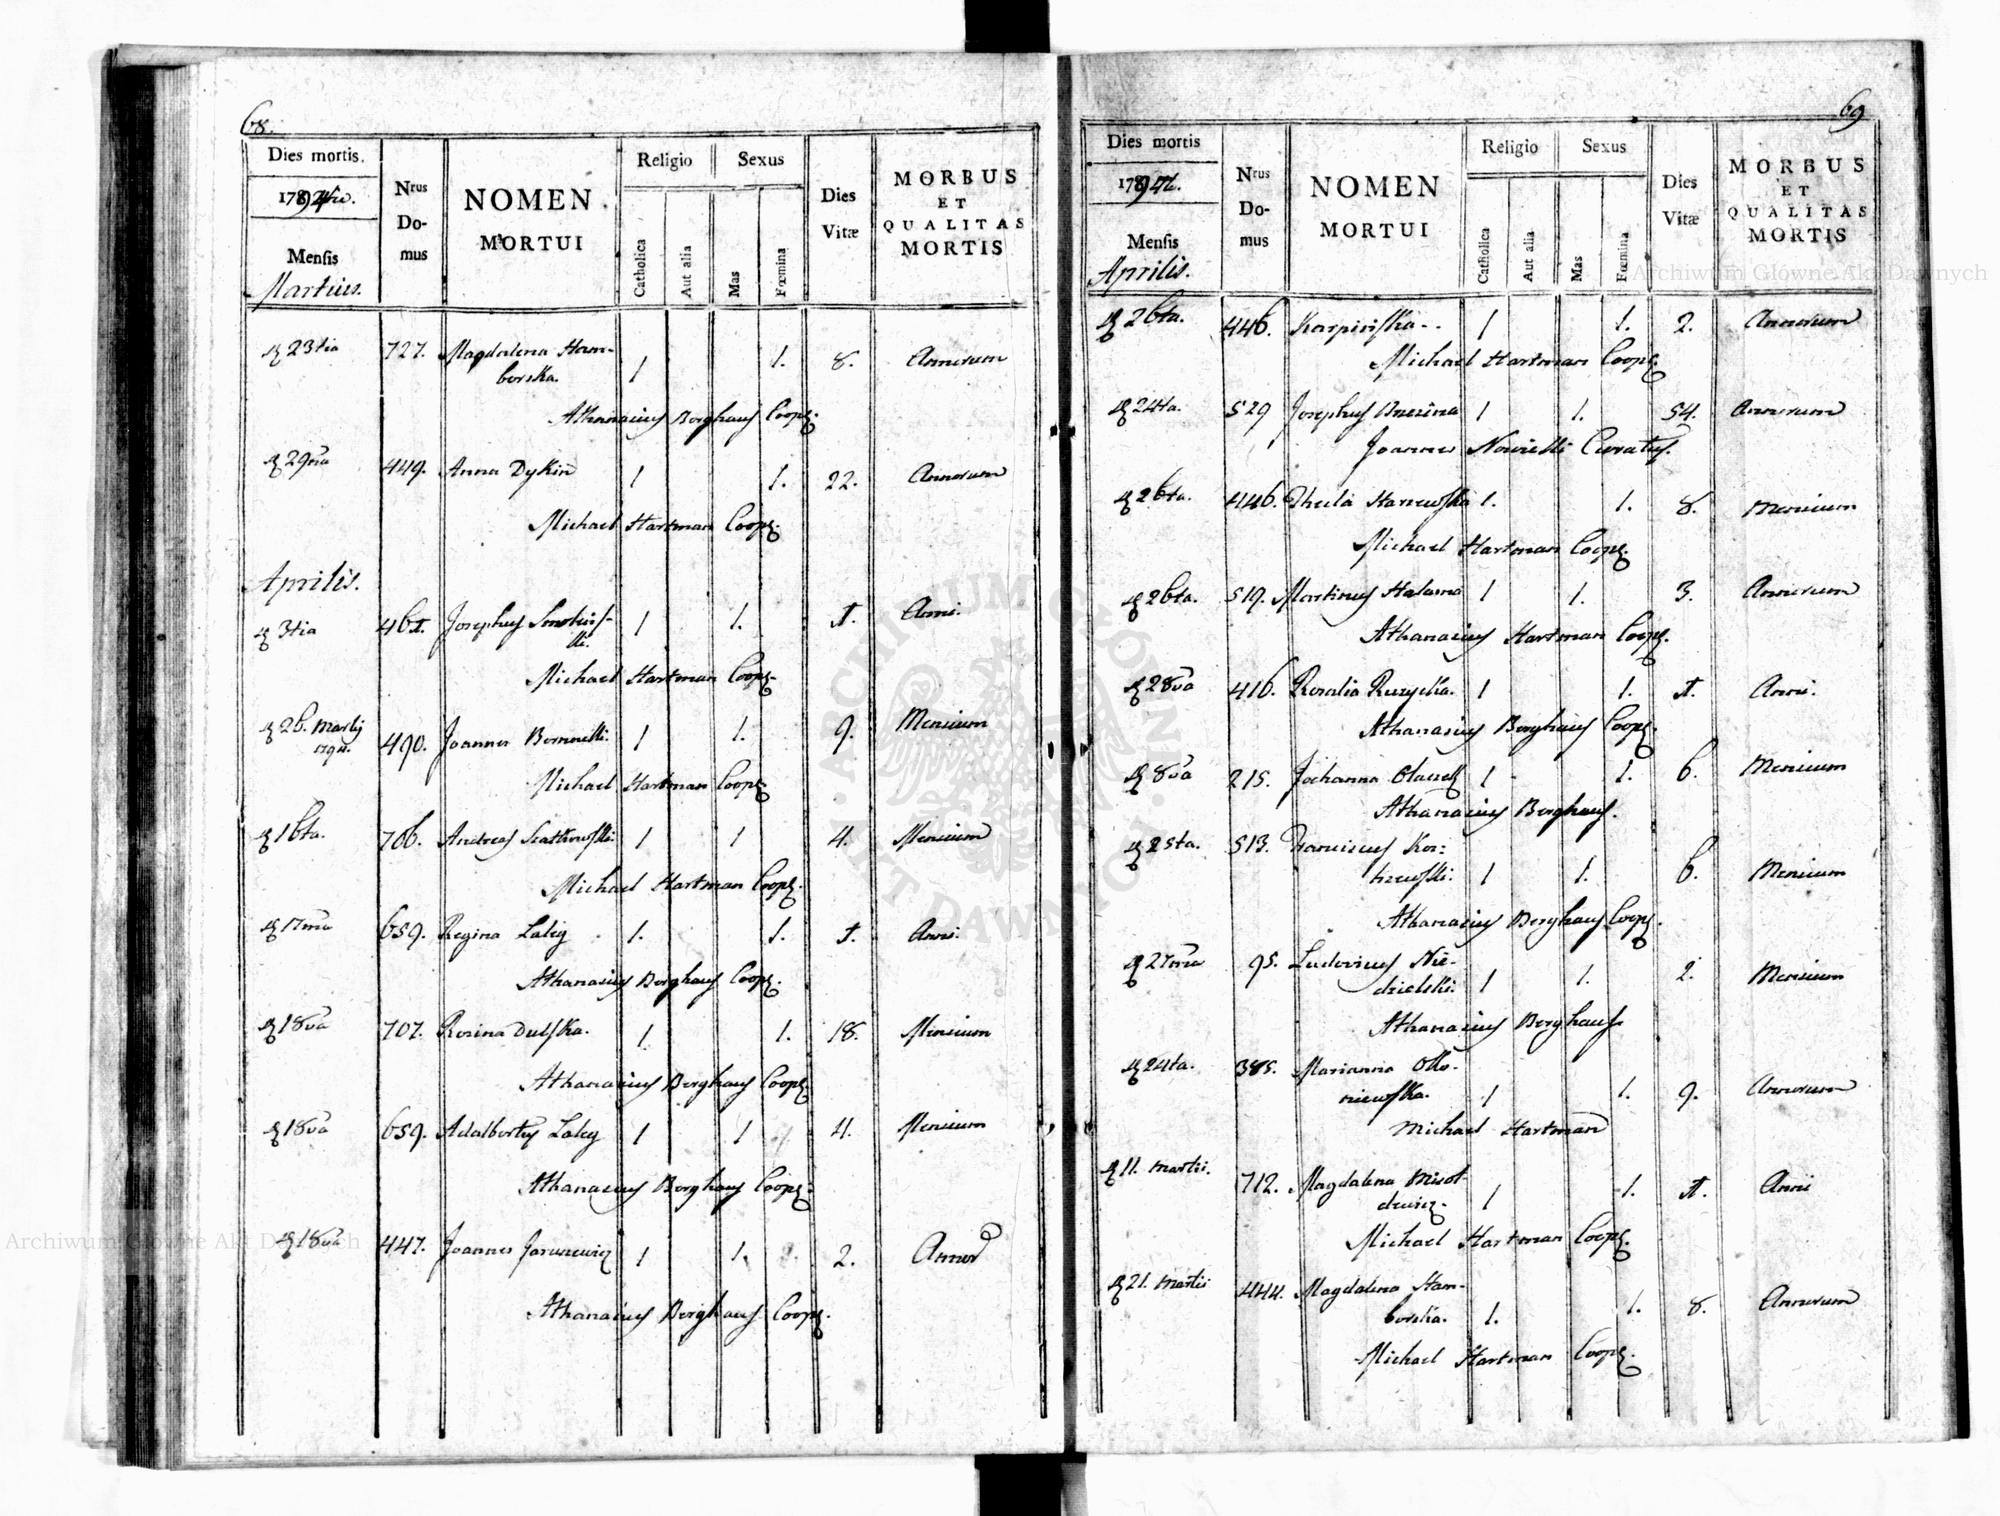 68.
Dies mortis.
1794to.
Mensis
Martius.
Nrus Do-mus
NOMEN MORTUI
Religio
Catholica
Aut alia
Sexus
Mas
Fœmina
Dies Vitæ
MORBUS ET QUALITAS MORTIS
23tia 727. Magdalena Ham- 1 1. 8. Annorum
borska.
Athanasius Berghaus Coop.
29na 449. Anna Dykin 1 1. 22. Annorum
Michael Hartman Coop.
Aprilis.
3tia Josephus 1 1. Anni.
Michael Hartman Coop.
26. Martij 1794. 490. Joannes 1 1. 9. Mensium
Michael Hartman Coop.
16ta. 706. Andreas 1 1 4. Mensium
Michael Hartman Coop.
17ma 659. Regina Laley 1. 1. 1. Anni.
Athanasius Berghaus Coop.
18va 707. Rosina Dulska. 1. 1. 18. Mensium
Athanasius Berghaus Coop.
18va 659. Adalbertus Laley 1 1 4. Mensium
Athanasius Berghaus Coop.
18va 447. Joannes Jarusewicz 1 1. 2. Annor
Athanasius Berghaus Coop.
69
Dies mortis
1794to.
Mensis
Aprilis.
Nrus Do-mus
NOMEN MORTUI
Religio
Catholica
Aut alia
Sexus
Mas
Fœmina
Dies Vitæ
MORBUS ET QUALITAS MORTIS
26ta. 446. Karpinska-- 1 1. 2. Annorum
Michael Hartman Coop.
24ta. 529 Josephus 1 1. 54. Annorum
Joannes Curatus.
26ta. 446. Thecla 1. 1. 8. Mensium
Michael Hartman Coop.
26ta. 519. Martinus Halama 1 1. 3. Annorum
Athanasius Hartman Coop.
28va 416. Rosalia Ruzycka. 1 1. 1. Anni.
Athanasius Berghaus Coop.
8va 215. Johanna 1 1. 6. Mensium
Athanasius Berghaus.
25ta. 513. Franciscus Kor-
1 1. 6. Mensium
Athanasius Berghaus Coop.
27ma 95. Ludovicus Nie-
dzielski. 1 1. 2. Mensium
Athanasius Berghaus
24ta. 385. Marianna
niewska. 1 1. 9. Annorum
Michael Hartman
11. Martii. 712. Magdalena 1 1. 1. Anni
Michael Hartman Coop.
21. Martii 444. Magdalena Ham-
borska. 1. 1. 8. Annorum
Michael Hartman Coop.
Archiwum Główne Akt Dawnych
Archiwum Główne Akt Dawnych
ARCHIWUM GŁÓWNE AKT DAWNYCH